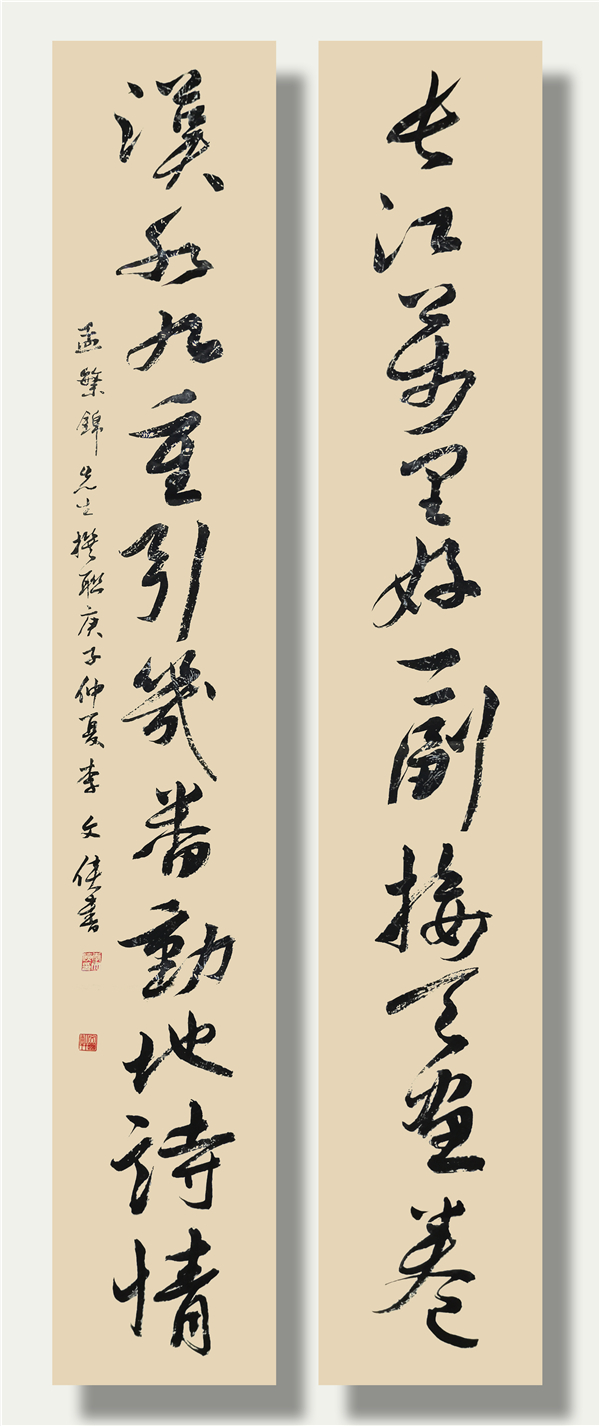 长江萬里好一副接天画卷
漢水九重引幾番動地詩情
孟繁錦先生撰聯庚子仲夏李文俠書